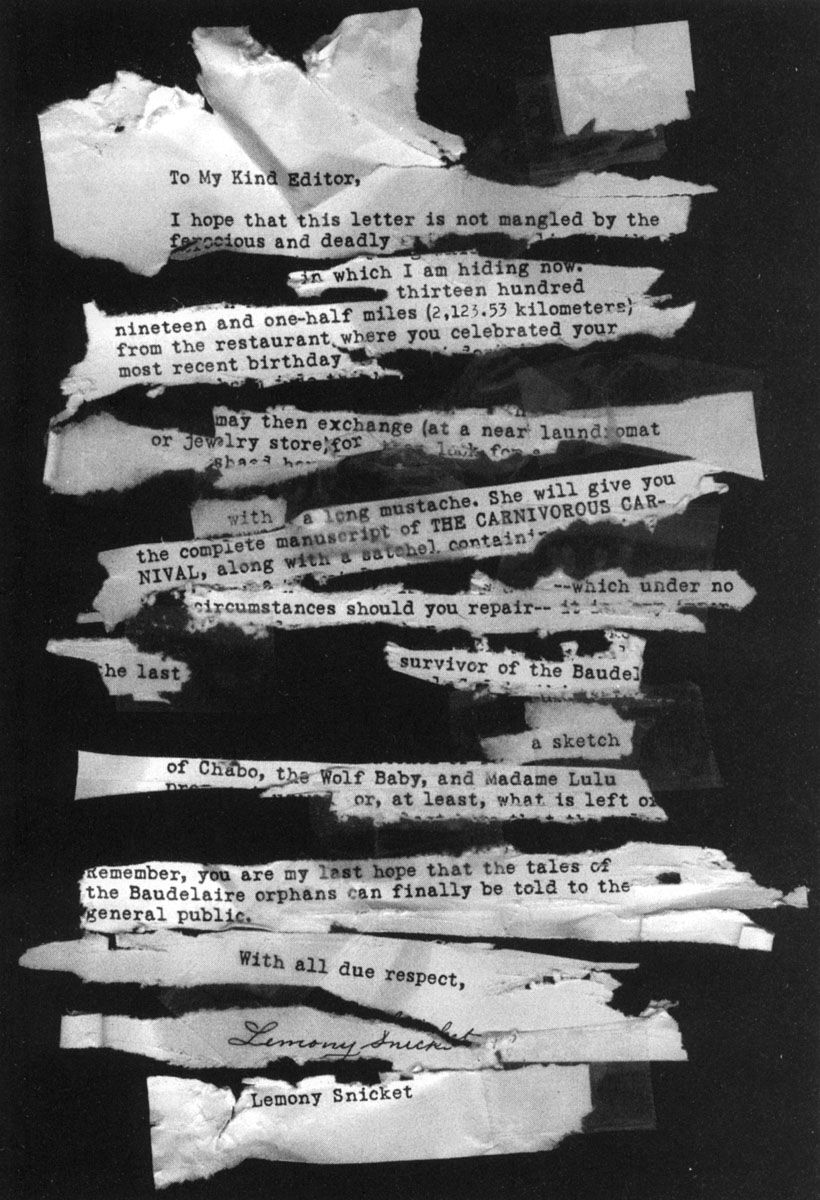 To My Kind Editor,
I hope that this letter is not mangled by the
ferocious and deadly
in which I am hiding now.
thirteen hundred
nineteen and one-half miles (2,123.53 kilometers)
from the restaurant where you celebrated your
most recent birthday
may then exchange (at a near laundromat
or jewelry store) for
with a long mustache. She will give you
the complete manuscript of THE CARNIVOROUS CAR-
NIVAL, along with a satchel contain
--which under no
circumstances should you repair--
he last survivor of the Baudel
a sketch
of Chabo, the Wolf Baby, and Madame Lulu
or, at least, what is left of
Remember, you are my last hope that the tales of
the Baudelaire orphans can finally be told to the
general public.
With all due respect,
Lemony Snicket
Lemony Snicket